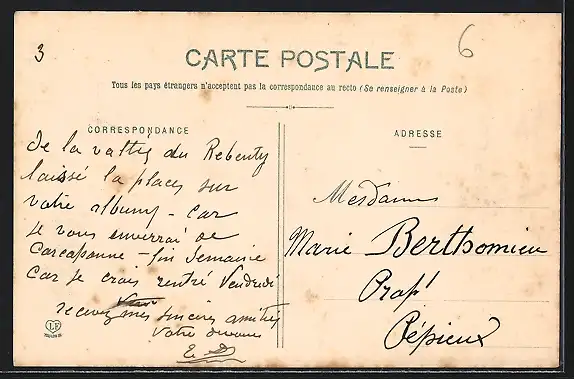 3
6
CARTE POSTALE
Tous les pays étrangers n'acceptent pas la correspondance au recto (Se renseigner à la Poste)
CORRESPONDANCE
ADRESSE
De la vallée du Rebenty
laissé la places sur
votre album - car
je vous enverrai de
Carcassonne - fin semaine
car je crois rentré Vendredi
recevez mes sincères amitiés
votre
Mesdames
Marie Berthomieu
Prop!
Pépieux
LF